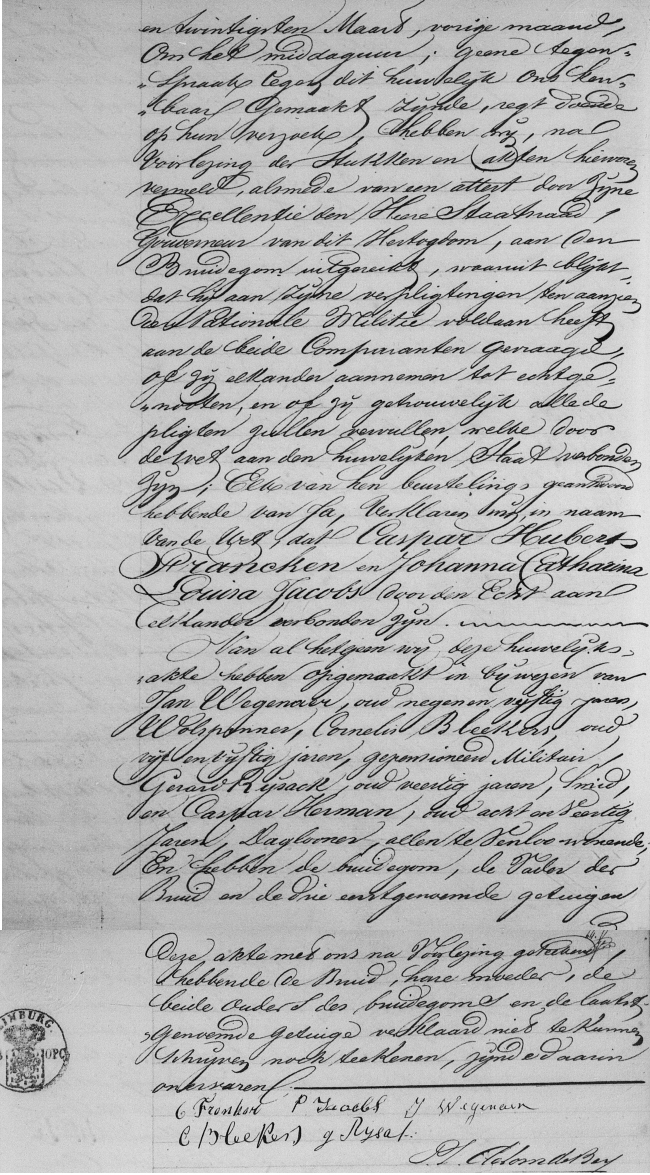 en twintigsten Maart, vorige maand,
Om het middaguur; geene tegen-
„spraak tegen dit huwelijk Ons ken-
„baar Gemaakt zijnde, regt doende
op hun verzoek, hebben wij, na
Voorlezing der Stukken en akten hiervoren
vermeld, alsmede van een attest door Zijne
Excellentie den Heere Staatsraad,
Gouverneur van dit Hertogdom, aan den
Bruidegom uitgereikt, waaruit blijkt
dat hij aan zijne verpligtingen ten aanzien
der Nationale Militie voldaan heeft,
aan de beide Comparanten gevraagd,
of zij elkander aannemen tot echtge-
„nooten, en of zij getrouwelijk alle de
pligten zullen vervullen, welke door
de wet aan den huwelijken Staat verbonden
zijn; Elk van hen beurtelings geantwoord
hebbende van Ja, Verklaren wij, in naam
van de Wet, dat Caspar Hubert
Francken en Johanna Catharina
Louisa Jacobs door den Echt aan
elkander verbonden zijn.
Van al hetgeen wij deze huwelijks-
„akte hebben opgemaakt in bijwezen van
Jan Wegenaer, oud negenen vijftig jaren,
Wolspinner, Cornelis Bleekers, oud
vijf en vijftig jaren, gepensioneerd Militair,
Gerard Rysack, oud veertig jaren, Smid,
en Caspar Herman, oud acht en Veertig
Jaren, Daglooner, allen te Venloo wonende;
En hebben de bruidegom, de Vader der
Bruid en de drie eerstgenoemde getuigen
Deze akte met ons na Voorlezing geteekend,
hebbende de Bruid, hare moeder, de
beide ouders des bruidegoms en de laatst-
„genoemde getuige verklaard niet te kunnen
Schrijven noch teekenen, zijnde daarin
onervaren.
LIMBURG
OPC
C Franken P Jacobs J Wegenaer
C Bleekers g Rysak